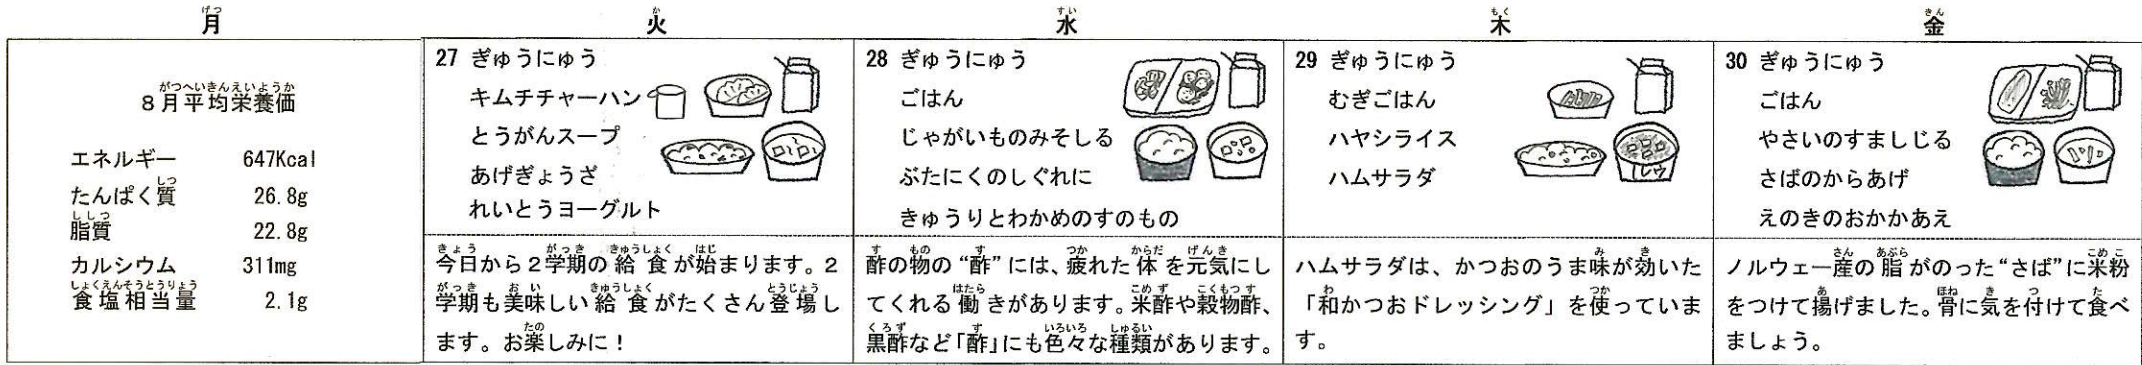 月
８月平均栄養価
エネルギー 647Kcal
たんぱく質 26.8g
脂質 22.8g
カルシウム 311mg
食塩相当量 2.1g
火
27 ぎゅうにゅう
キムチチャーハン
とうがんスープ
あげぎょうざ
れいとうヨーグルト
今日から２学期の給食が始まります。２
学期も美味しい給食がたくさん登場し
ます。お楽しみに！
水
28 ぎゅうにゅう
ごはん
じゃがいものみそしる
ぶたにくのしぐれに
きゅうりとわかめのすのもの
酢の物の“酢”には、疲れた体を元気にし
てくれる働きがあります。米酢や穀物酢、
黒酢など「酢」にも色々な種類があります。
木
29 ぎゅうにゅう
むぎごはん
ハヤシライス
ハムサラダ
ハムサラダは、かつおのうま味が効いた
「和かつおドレッシング」を使っていま
す。
金
30 ぎゅうにゅう
ごはん
やさいのすましじる
さばのからあげ
えのきのおかかあえ
ノルウェー産の脂がのった“さば”に米粉
をつけて揚げました。骨に気を付けて食べ
ましょう。